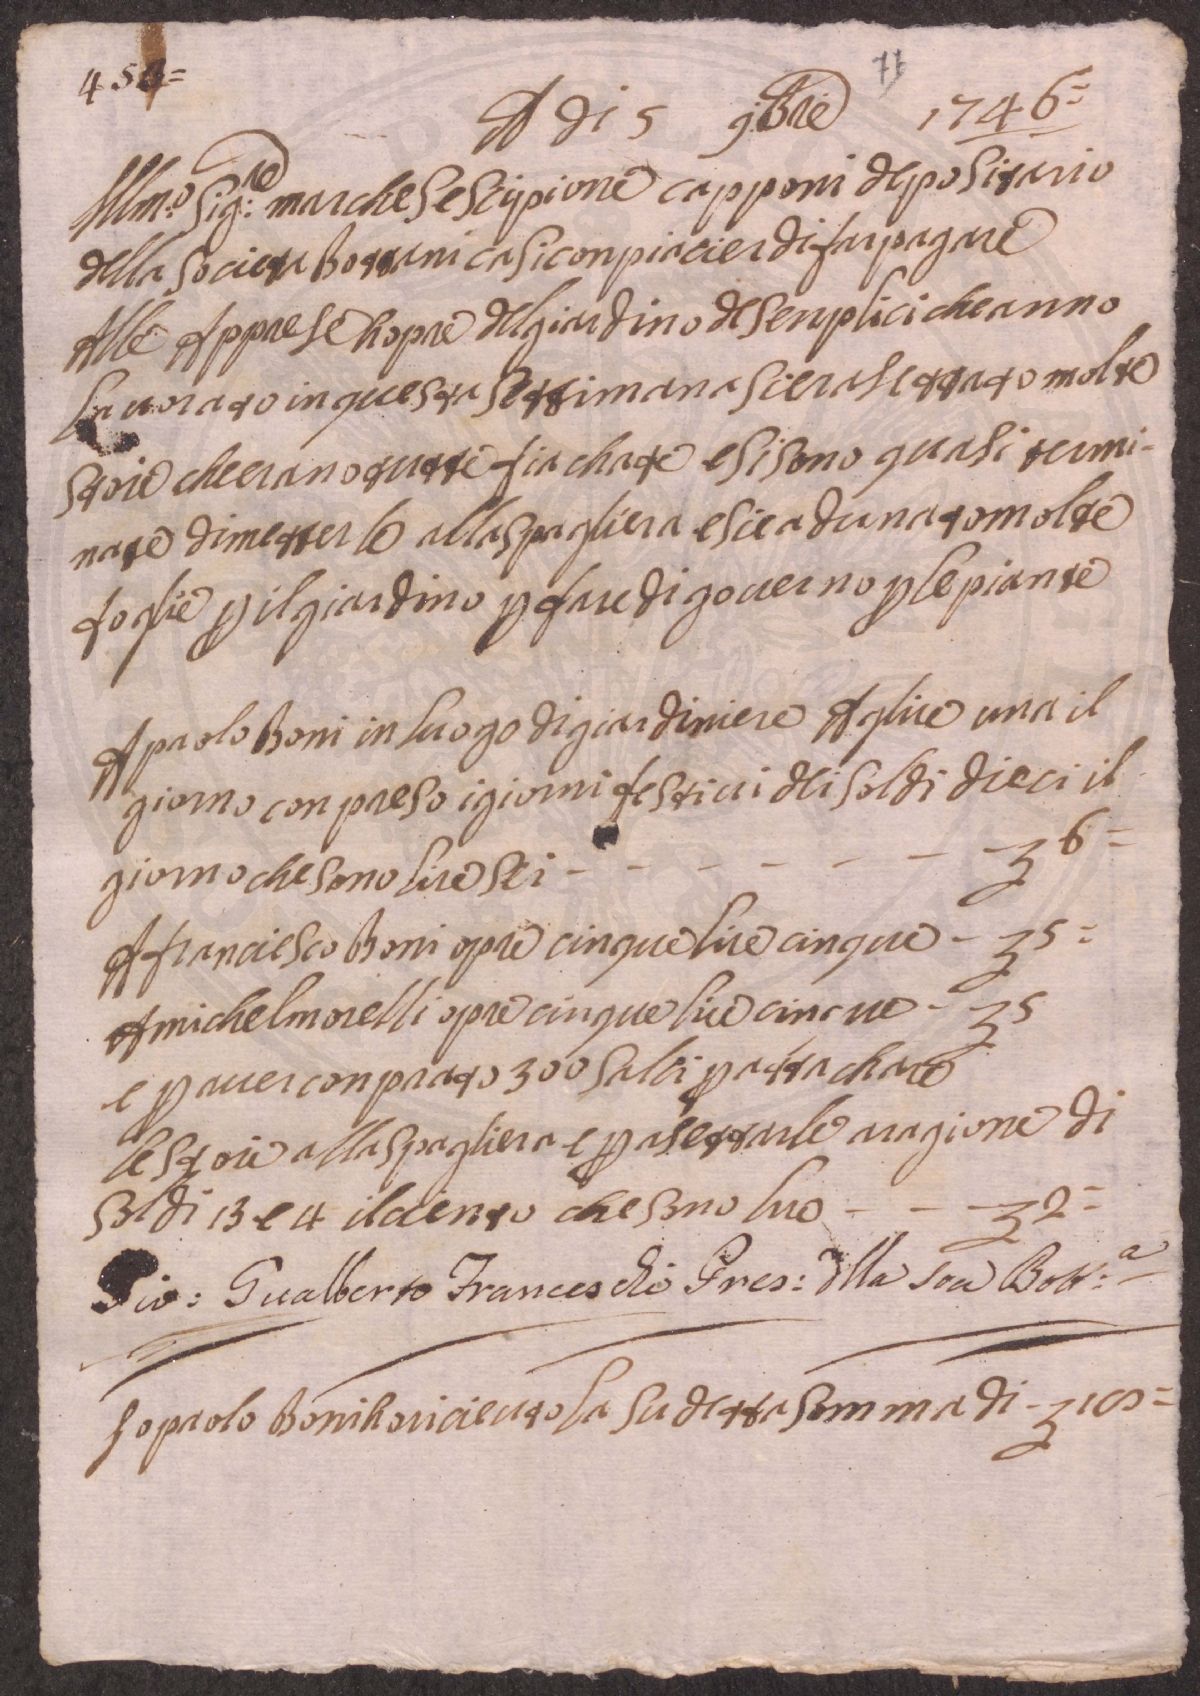 454=
71
A di 5 9bre 1746=
Illmo: Sig:re marchese Scipione Capponi depositario
della Societa Bottanica si conpiacier di far pagare
Alle Apprese hopre del giardino de Senplici che anno
la vorato in questa settimana si e rasettato molte
stoie che erano tutte fiachate e si sono quasi termi-
nate di metterle alla spagliera e si e adunato molte
foglie p il giardino p fare di governo p le piante
A paolo Boni in luogo di giardiniere A lire una il
giorno conpreso i giorni festivi di soldi dieci il
giorno che sono lire sei - - - - - - - - 6=
A franciesco Boni opre cinque lire cinque - 5=
A michel morelli opre cinque lire cinque - 5
e p aver conprato 300 salci p attachare
le stoie alla spagliera e p asettarle a ragione di
soldi 13 e 4 il ciento che sono lire - - - 2=
Gio: Gualberto Franceschi Pres: dlla Soci Bott:a
Io paolo Boni ho riceuto la sudetta somma di - 18=